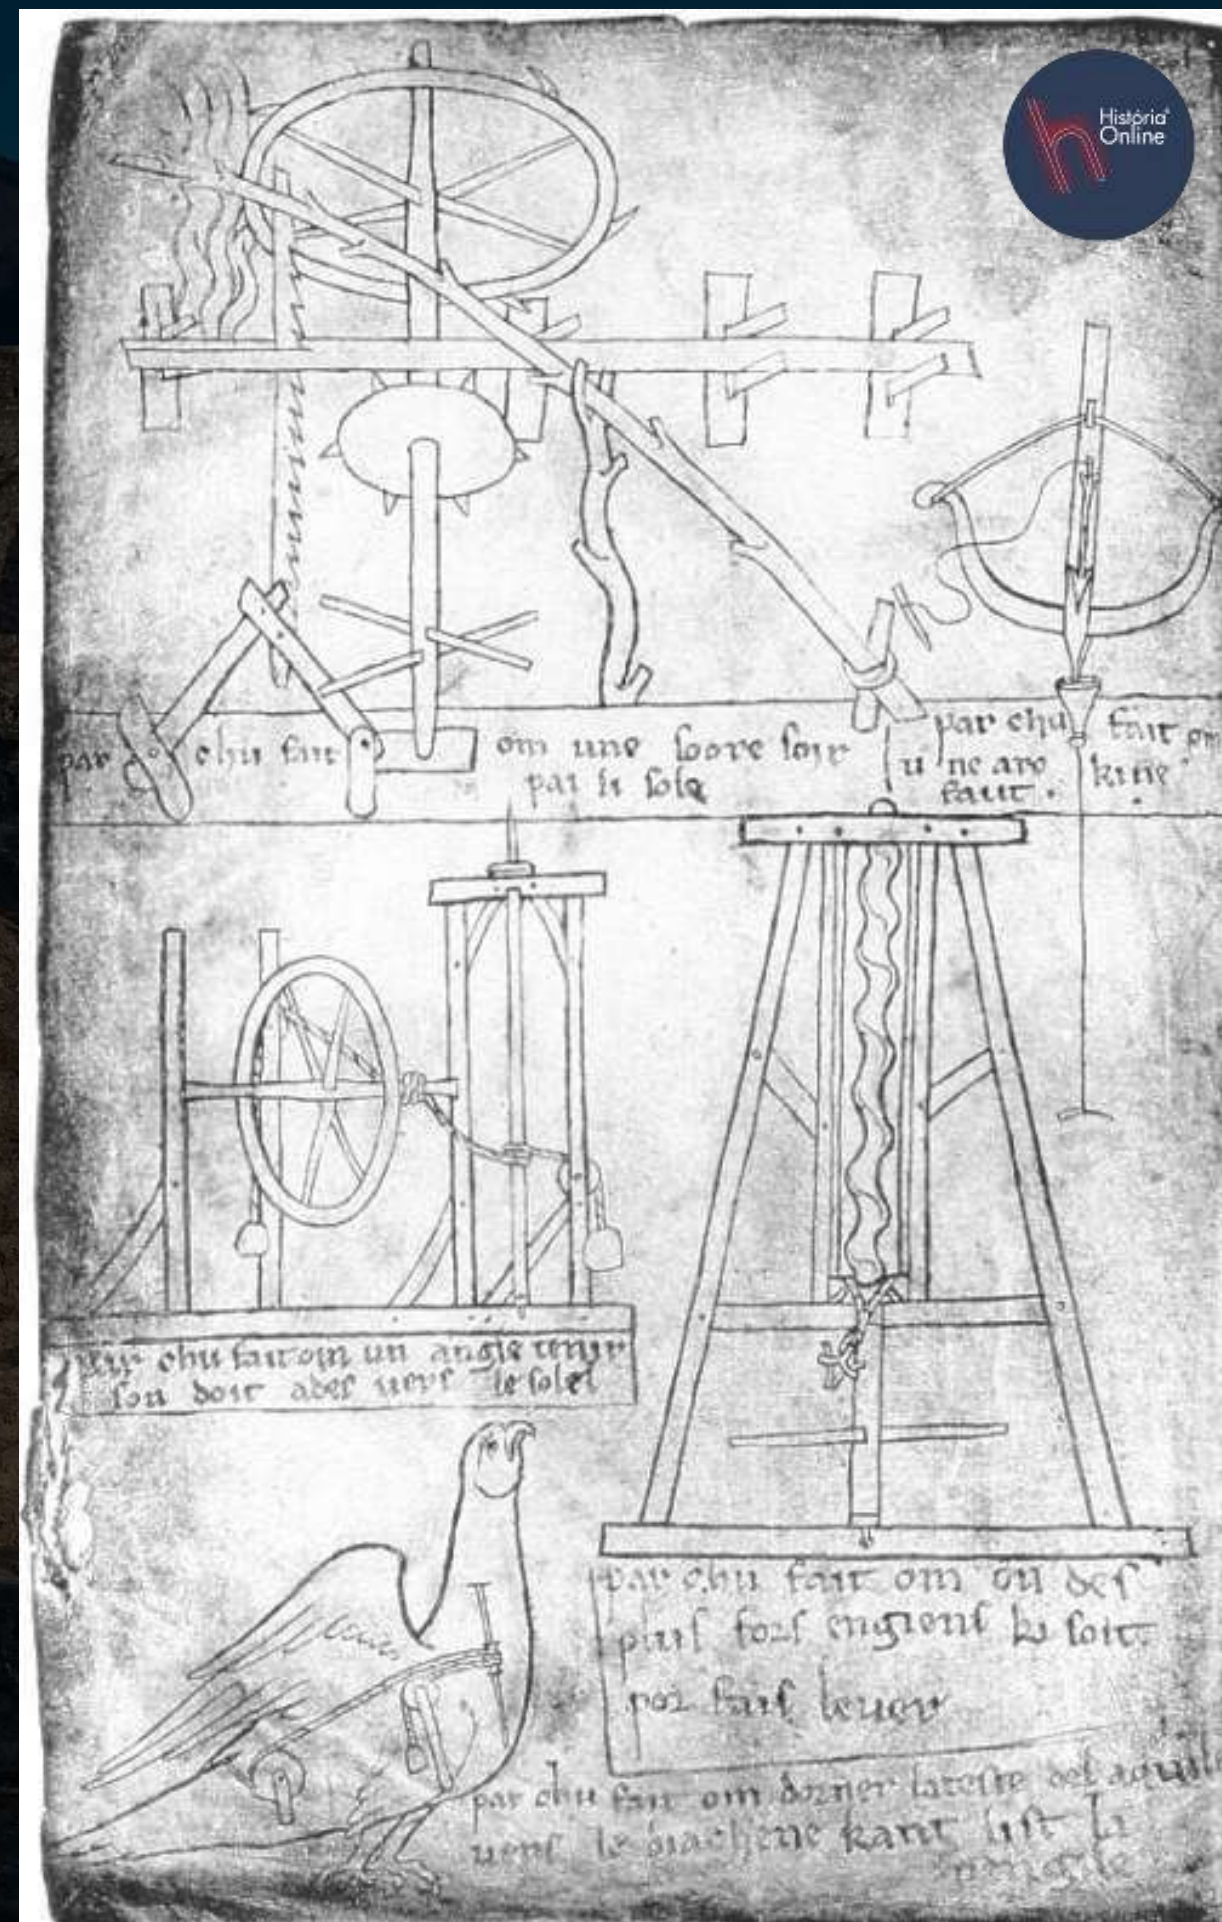 História
Online
par chu fait om une soore soir
par li sole
par chu fait om
u ne arc kine
faut .
par chu fait om un angle tenir
son doit ades vers le solel
par chu fait om on des
plus fors engiens ki soit
por fais lever
par chu fait om dorner lateste del aquile
vers le diachene kant list la